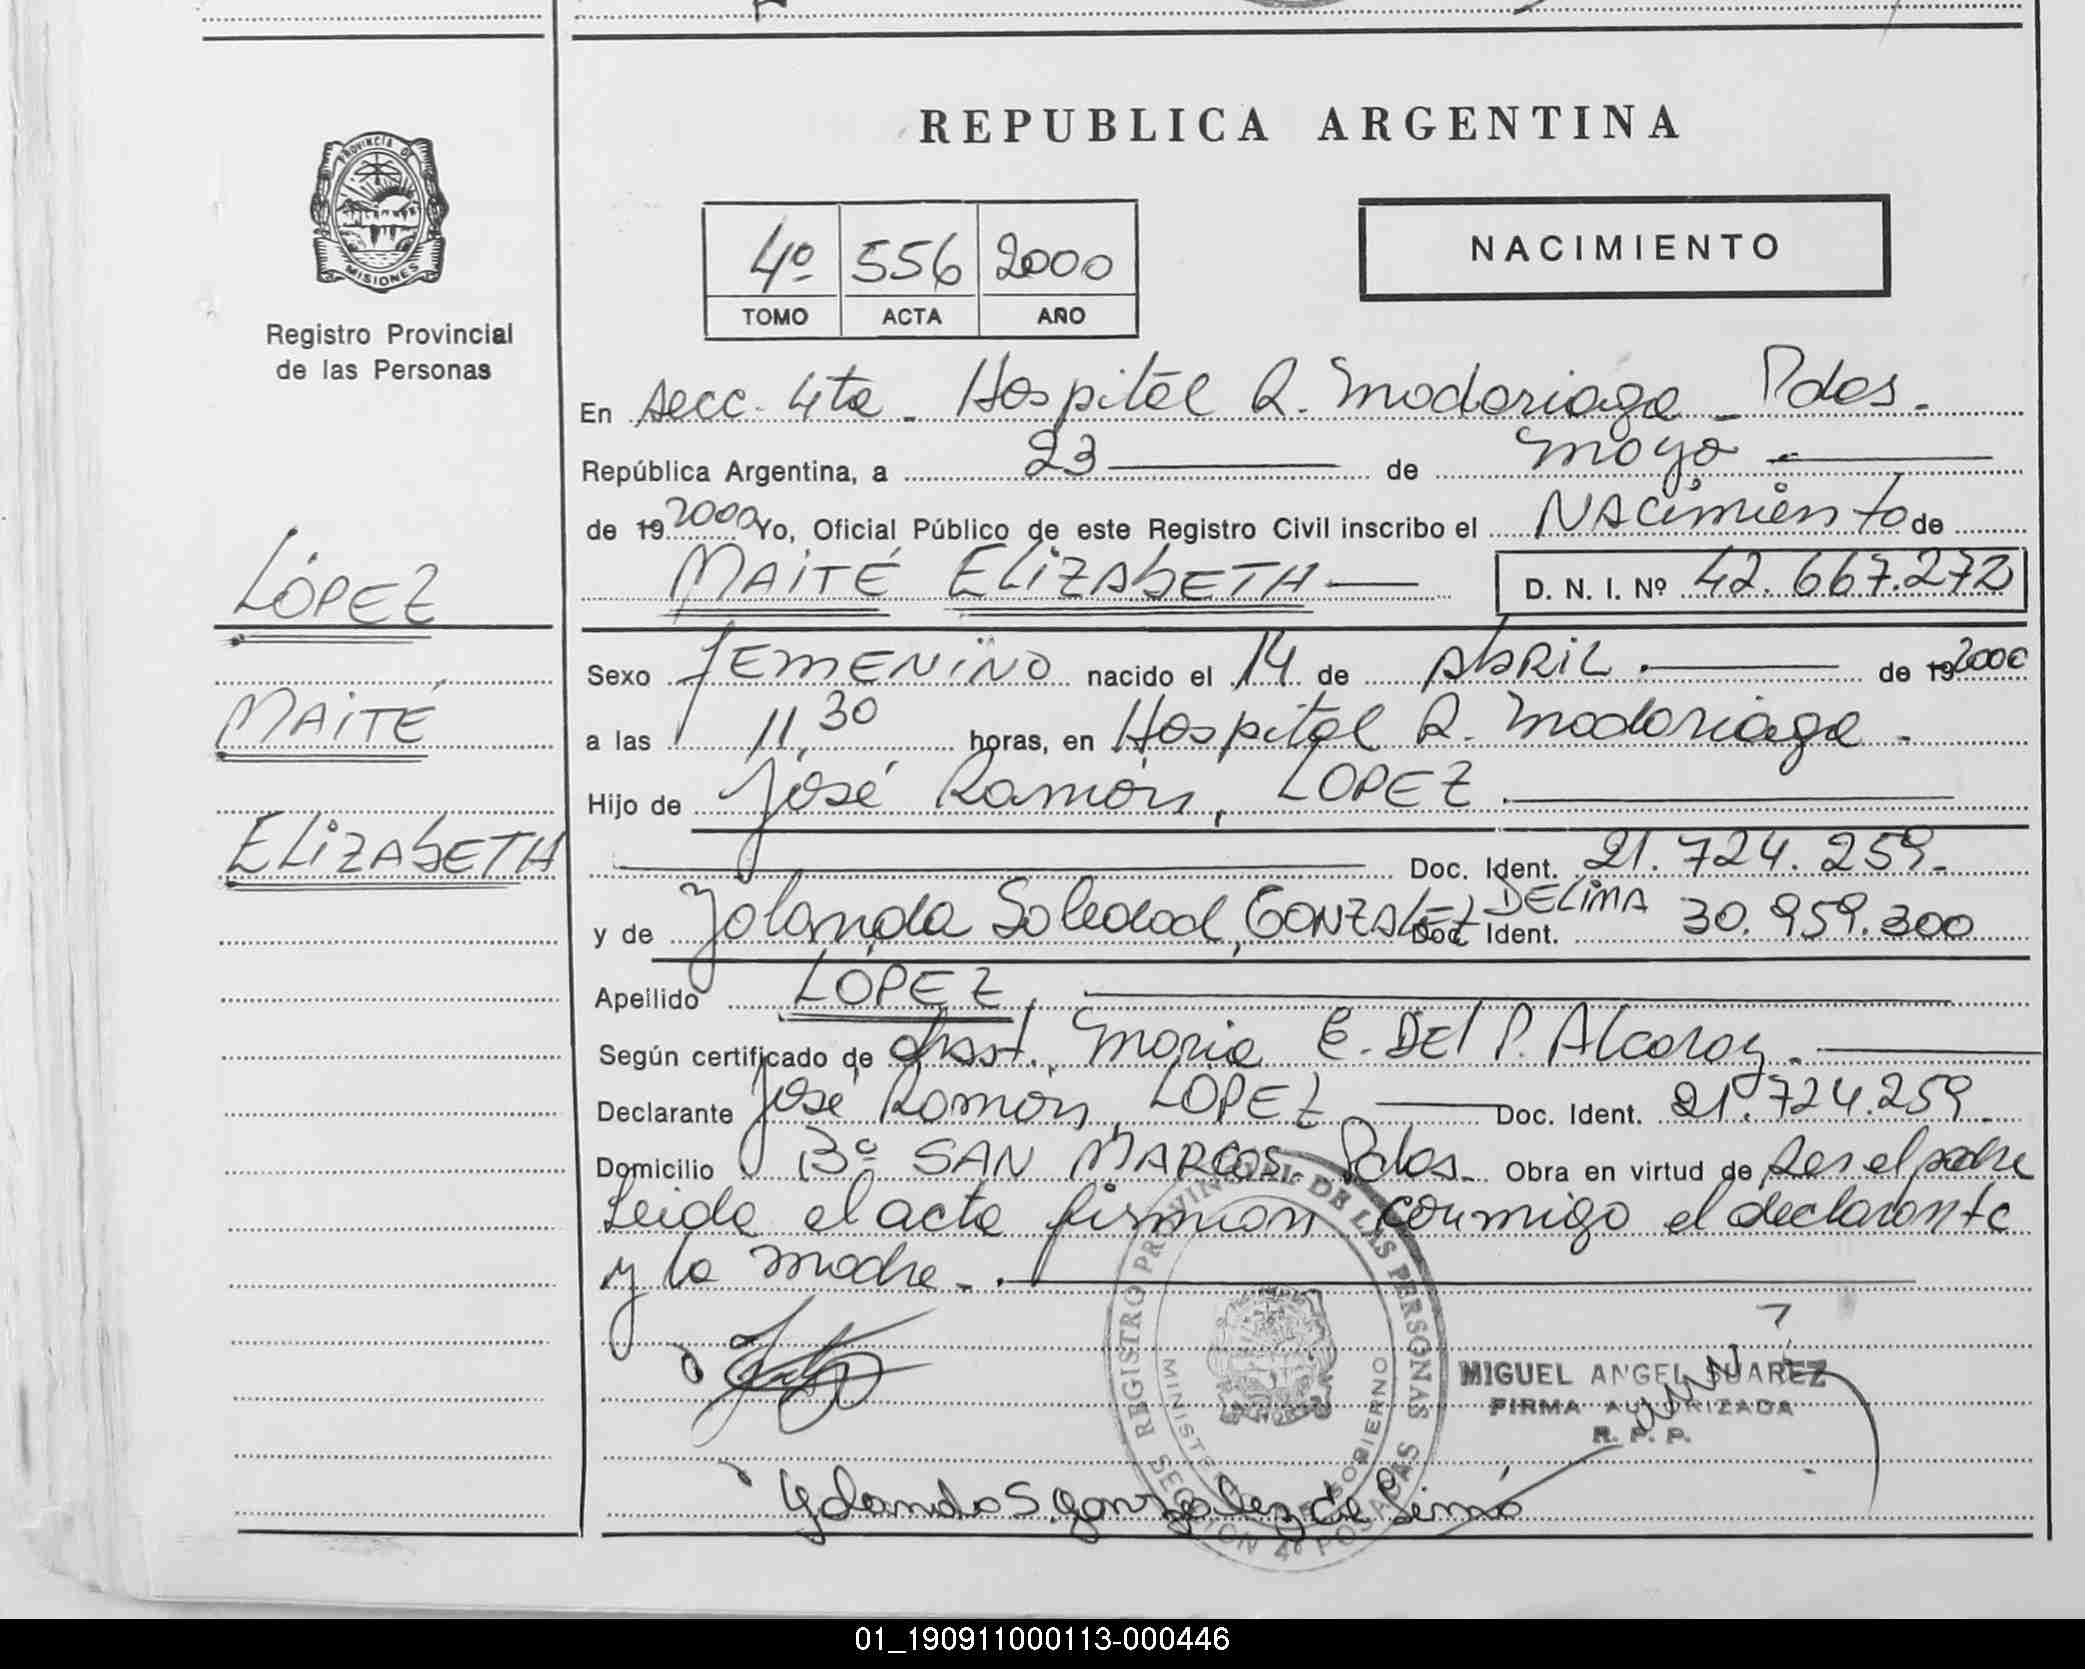 REPUBLICA ARGENTINA
PROVINCIA DE
MISIONES
Registro Provincial
de las Personas
4º 556 2000
TOMO ACTA AÑO
NACIMIENTO
En Secc. 4ta. Hospital R. Madariaga - Pdas.
República Argentina, a 23 de Mayo
de 19 2000 Yo, Oficial Público de este Registro Civil inscribo el NACimiento de
MAiTÉ ELiZAbETH D. N. I. Nº 42.667.272
LÓPEZ
MAiTÉ
ELiZAbETH
Sexo FEMENiNO nacido el 14 de AbRiL de 19 2000
a las 11,30 horas, en Hospital R. Madariaga.
Hijo de José Ramón, LOPEZ
Doc. Ident. 21.724.259.
y de Yolanda Soledad, GONZALEZ DELiMA Doc. Ident. 30.959.300
Apellido LÓPEZ
Según certificado de Obst. Maria E. DEl P. Alcaraz.
Declarante José Ramón, LOPEZ Doc. Ident. 21.724.259
Domicilio Bº SAN MARCOS Pdas. Obra en virtud de Ser el padre
Leida el acta firman conmigo el declarante
y la madre.
REGISTRO PROVINCIAL DE LAS PERSONAS
MINISTERIO DE GOBIERNO
SECCION 4º POSADAS
MIGUEL ANGEL SUAREZ
FIRMA AUTORIZADA
R. P. P.
Yolanda S. gonzalez de Lima
01_190911000113-000446